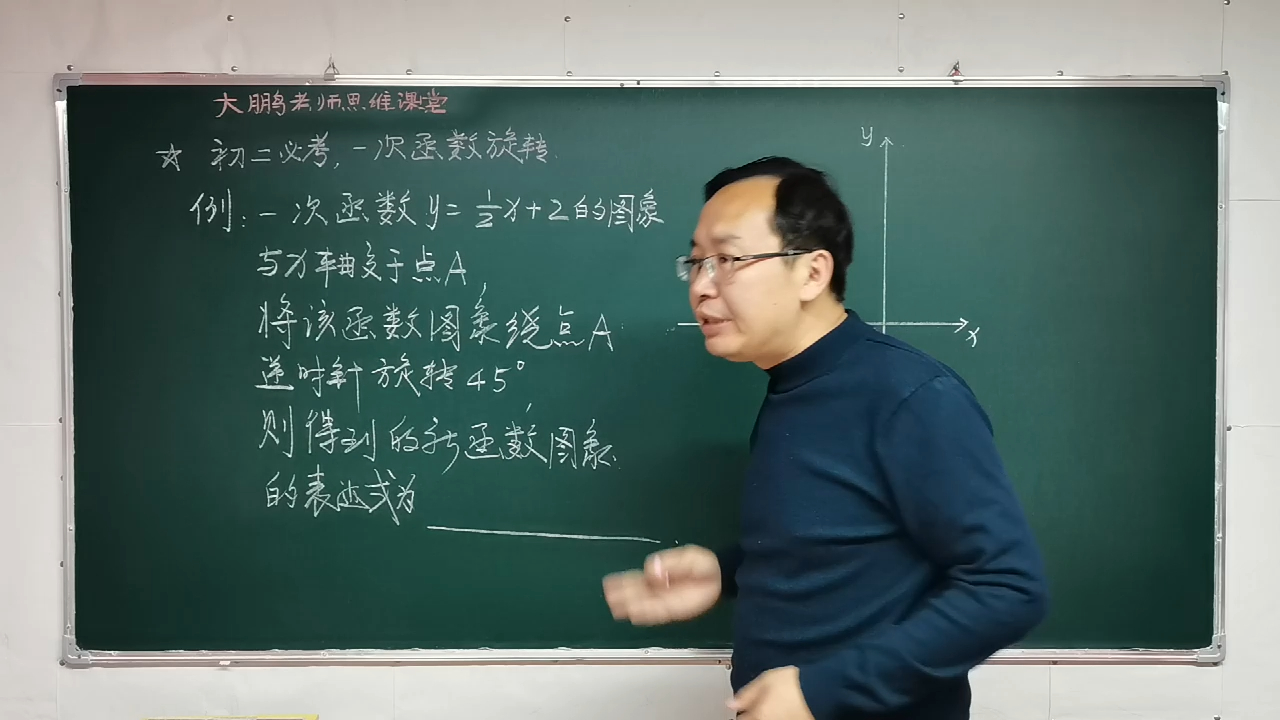 大鹏老师思维课堂
☆ 初二必考,一次函数旋转
例:一次函数y=½x+2的图象
与x轴交于点A,
将该函数图象绕点A
逆时针旋转45°,
则得到的新函数图象
的表达式为
y
x